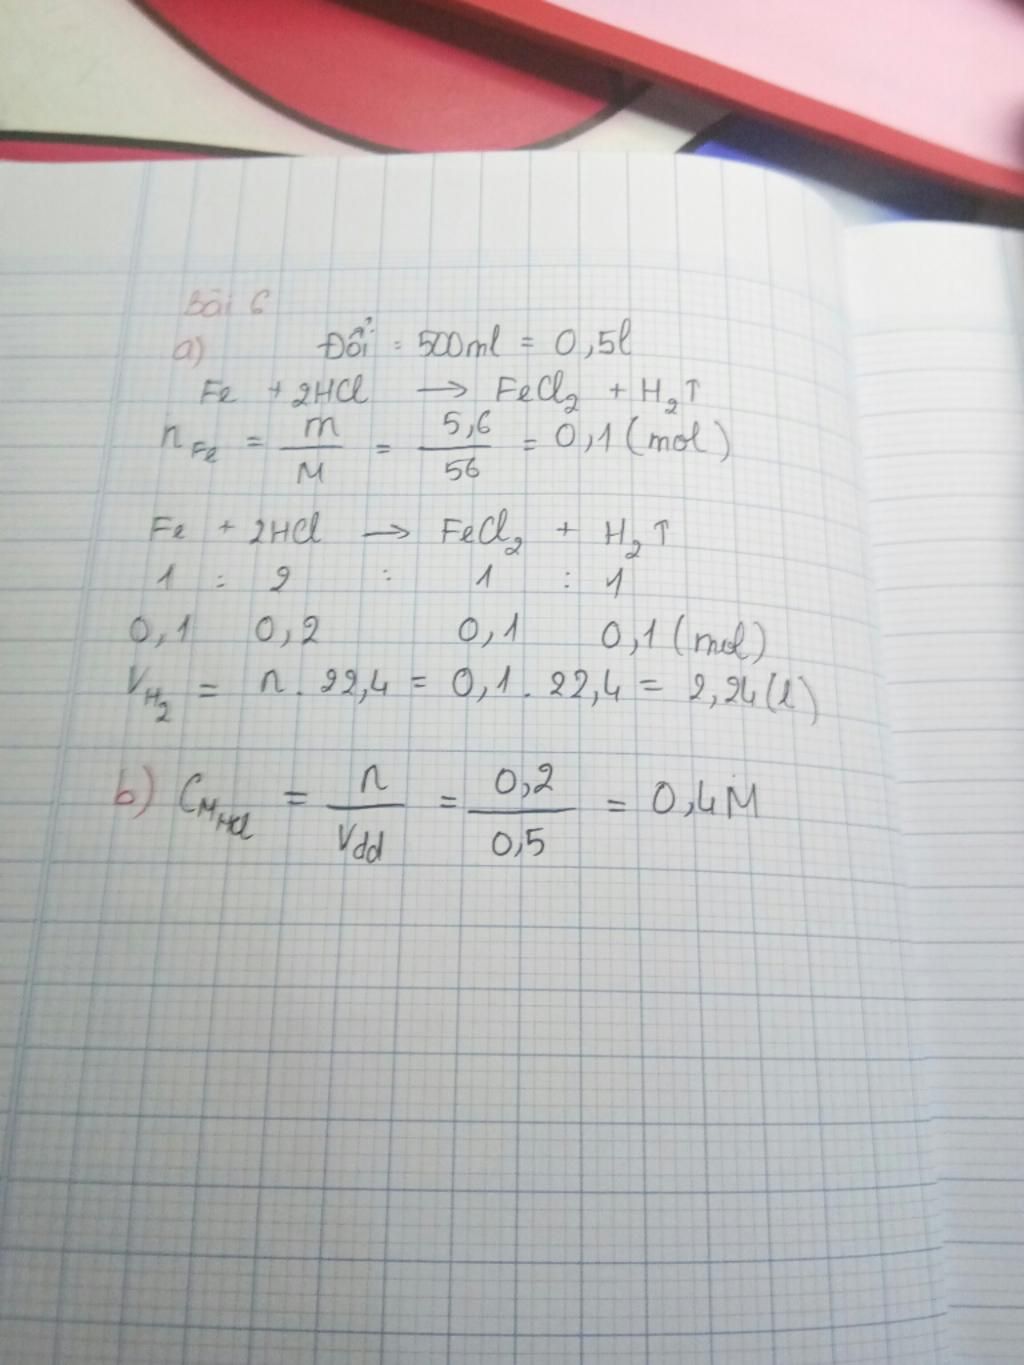 Bài 6
a) Đổi : 500ml = 0,5l
Fe + 2HCl → FeCl₂ + H₂↑
n_Fe = m/M = 5,6/56 = 0,1 (mol)
Fe + 2HCl → FeCl₂ + H₂↑
1 : 2 : 1 : 1
0,1 0,2 0,1 0,1 (mol)
V_H₂ = n . 22,4 = 0,1 . 22,4 = 2,24 (l)
b) C_M_HCl = n/Vdd = 0,2/0,5 = 0,4M